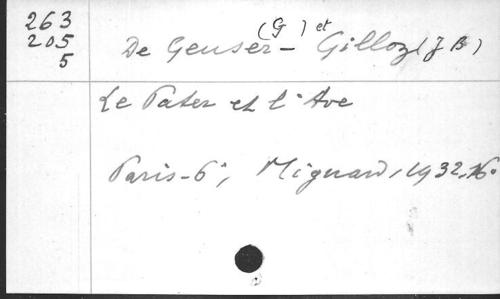 263
205
5
De Geuser (G) et Gilloz (J B)
Le Pater et l'Ave
Paris-6°, Mignard, 1932, 16°